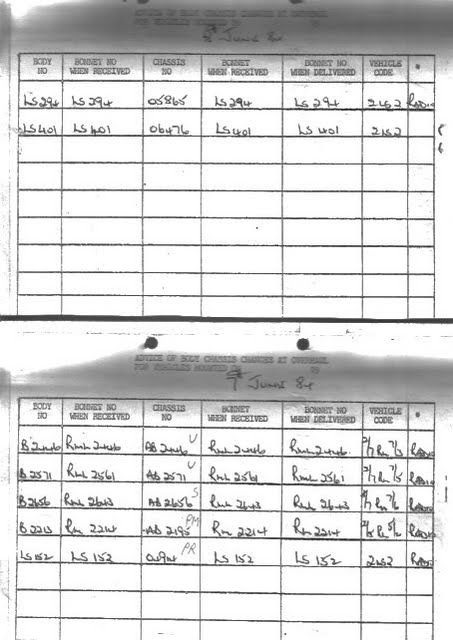 ADVICE OF BODY CHASSIS CHANGES AT OVERHAUL
FOR VEHICLES MOUNTED 19
June 84
BODY NO BONNET NO WHEN RECEIVED CHASSIS NO BONNET WHEN RECEIVED BONNET NO WHEN DELIVERED VEHICLE CODE *
LS294 LS294 05865 LS294 LS294 RADIO
LS401 LS401 06476 LS401 LS401
ADVICE OF BODY CHASSIS CHANGES AT OVERHAUL
FOR VEHICLES MOUNTED 19
7 June 84
BODY NO BONNET NO WHEN RECEIVED CHASSIS NO BONNET WHEN RECEIVED BONNET NO WHEN DELIVERED VEHICLE CODE *
B2446 RML 2446 AB 2446 U RML 2446 RML 2446 RADIO
B2571 RML 2561 AB 2571 U RML 2561 RML 2561 RADIO
B2656 RML 2643 AB 2656 S RML 2643 RML 2643 RADIO
B2213 RM 2214 AB 2195 PM RM 2214 RM 2214 RADIO
LS152 LS 152 PR LS 152 LS 152 RADIO